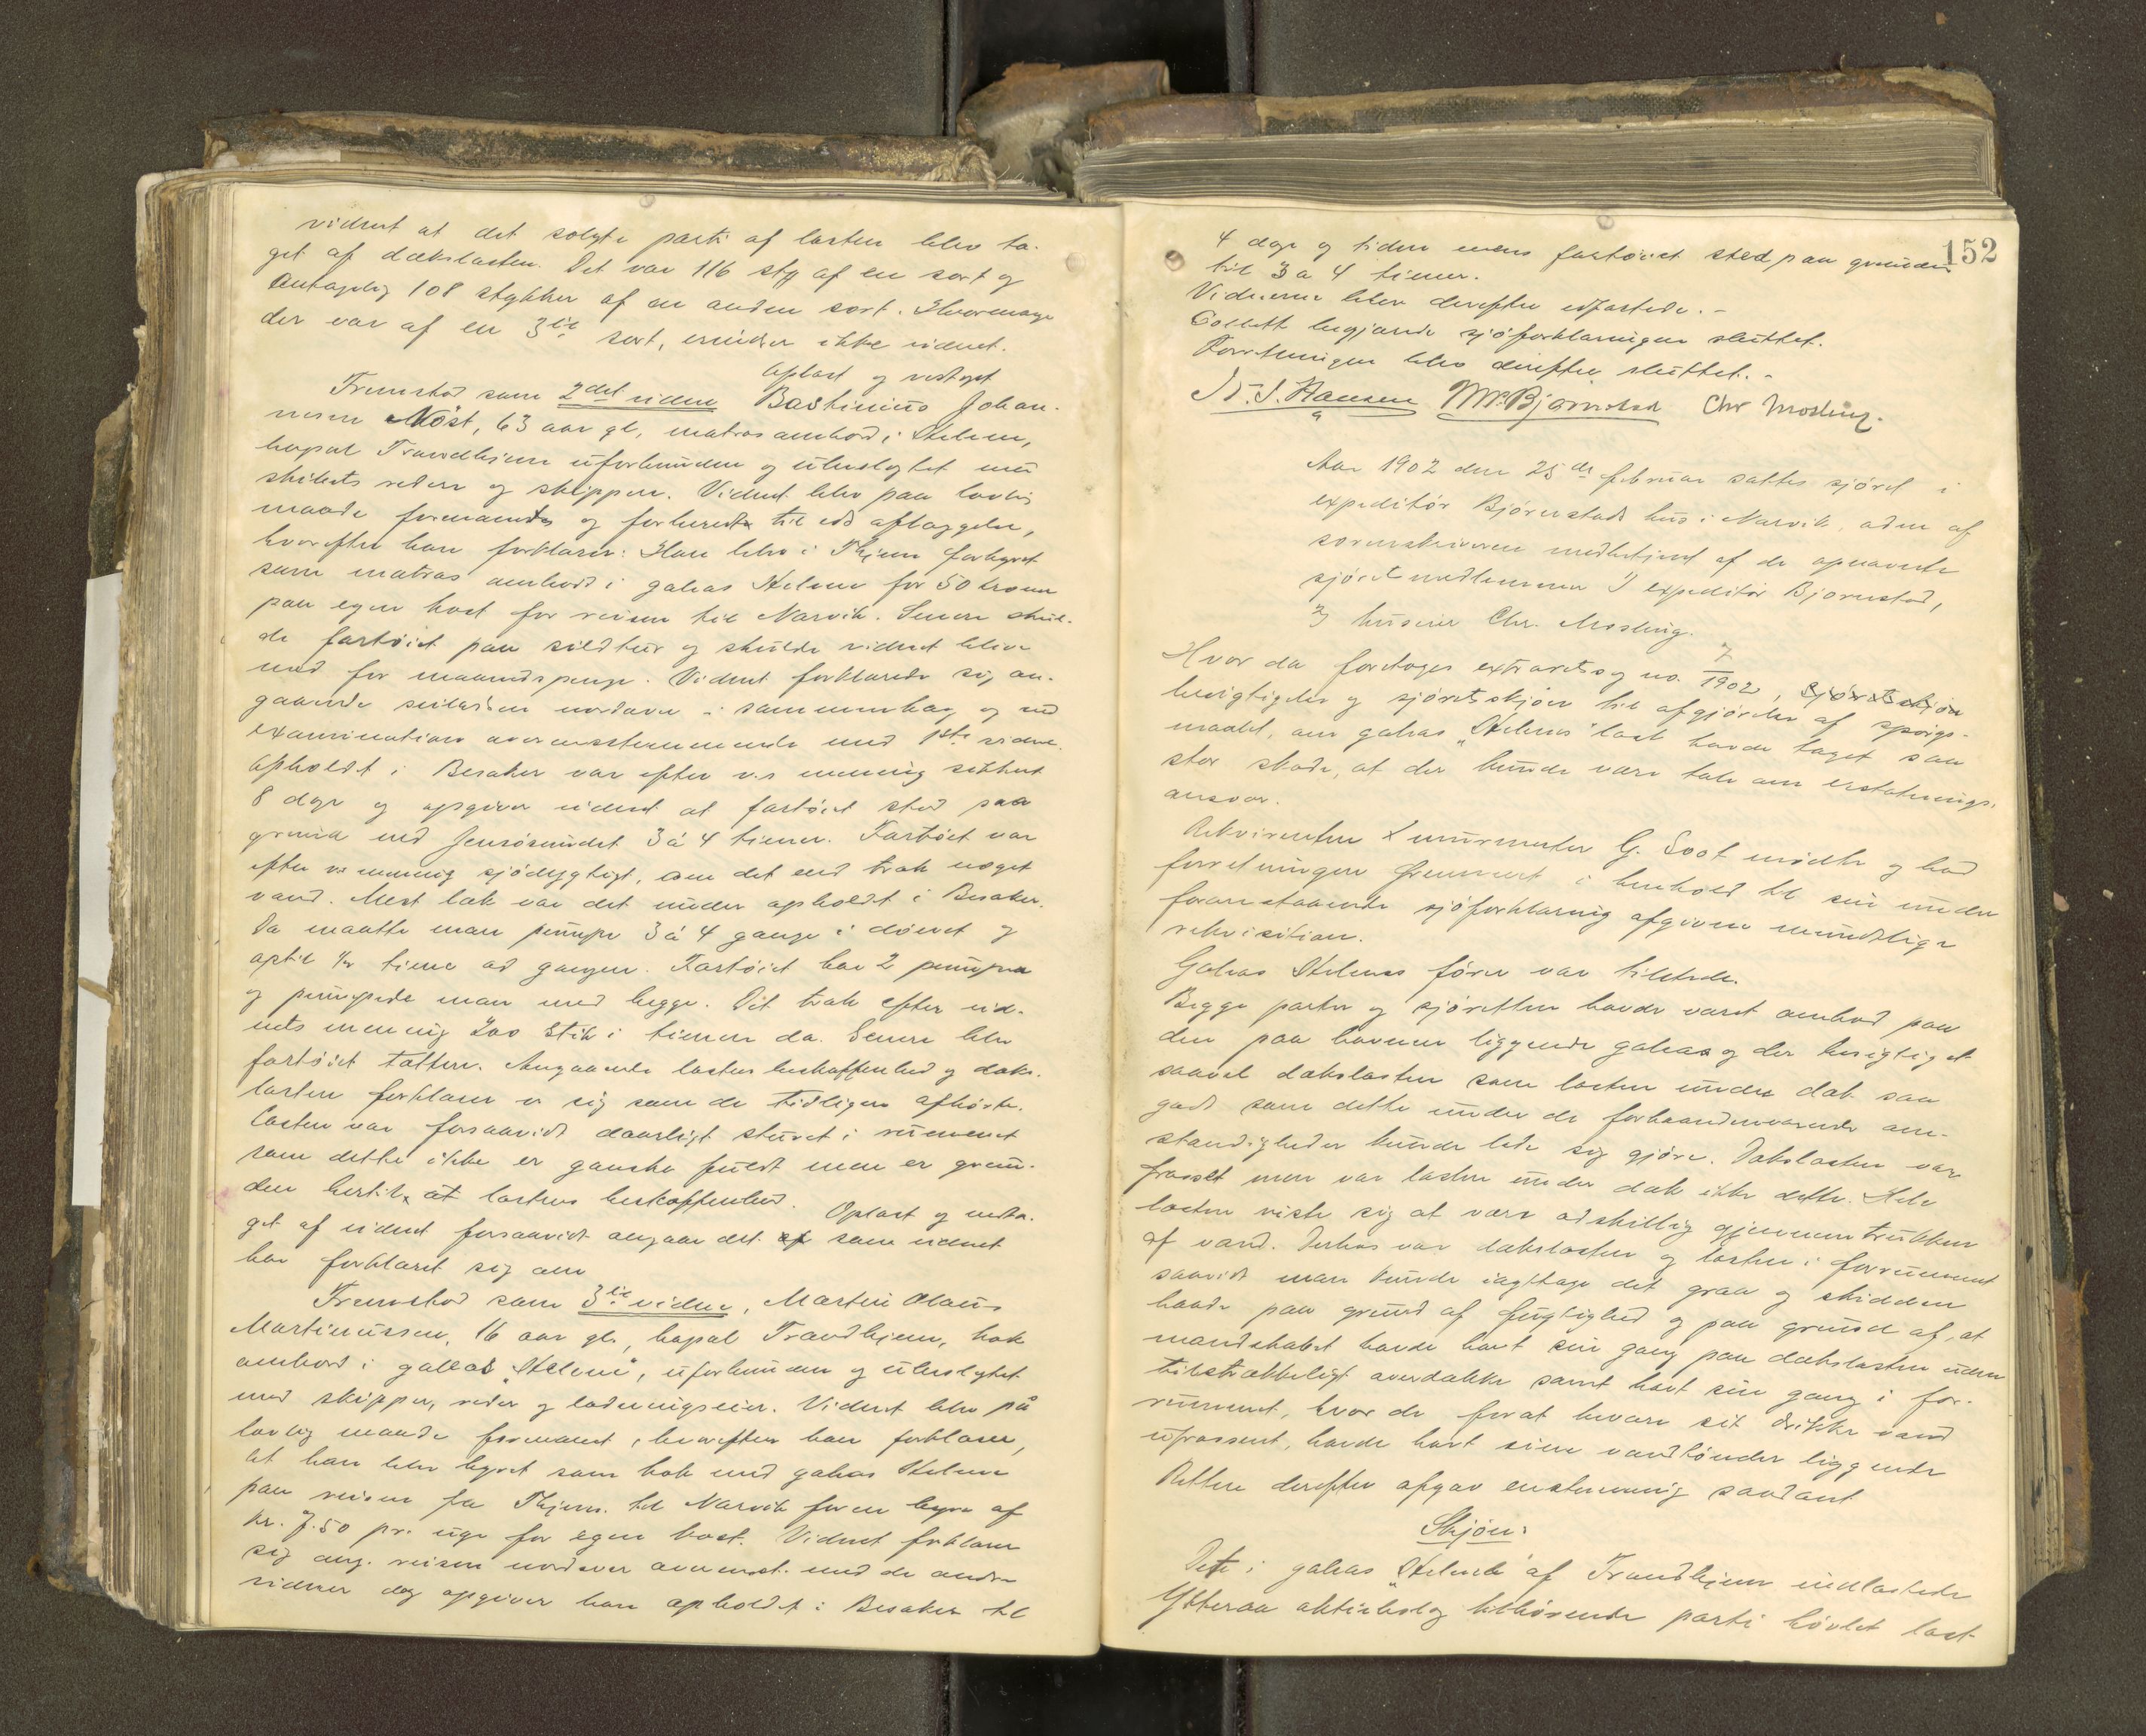 vidnet at det solgte parti af lasten blev ta-
get af dækslasten. Det var 116 stk af en sort og
antagelig 108 stykker af en anden sort. Hvormange
der var af en 3die sort, erindrer ikke vidnet.
Oplæst og vedtaget
Fremstod som 2det vidne Bastinius Johan-
nesen Nöst, 63 aar gl, matros ombord i Helene,
bopæl Trondhjem uforbunden og ubeslægtet med
skibets redere og skipper. Vidnet blev paa lovlig
maade formanet og forberedt til eds aflæggelse,
hvorefter han forklarer: Han blev i Thjem forhyret
som matros ombord i galeas Helene for 50 kroner
paa egen kost for reisen til Narvik. Senere skul-
de fartöiet paa sildtur og skulde vidnet blive
med for maanedspenge. Vidnet forklarede sig an-
gaaende seiladsen nordover i sammenhæng og ved
examination overensstemmende med 1ste vidne.
Opholdt i Besaker var efter v.s mening sikkert
8 dage og opgiver vidnet at fartöiet stod paa
grund ved Jensösundet 3 á 4 timer. Fartöiet var
efter vs mening sjödygtigt, om det end trak noget
vand. Mest læk var det under opholdt i Besaker.
Da maatte man pumpe 3 á 4 gange i dönet og
optil 1/2 time ad gangen. Fartöiet har 2 pumper
og pumpede man med begge. Det trak efter vid-
nets mening 200 Stik i timen da. Senere blev
fartöiet tættere. Angaaende lastens beskaffenhed og dæks-
lasten forklarer v. sig som de tidligere afhörte.
Lasten var forsaavidt daarligt stuvet i rummet
som dette ikke er ganske fuldt men er grun-
den hertil at lastens beskaffenhed. Oplæst og vedta-
get af vidnet forsaavidt angaar det af som vidnet
har forklaret sig om
Fremstod som 3die vidne, Martin Olaus
Martinussen, 16 aar gl., bopæl Trondhjem, kok
ombord i galeas "Helene", uforbunden og ubeslægtet
med skipper, reder og ladningseier. Vidnet blev på
lovlig maade formanet, hvorefter han forklarer,
at han blev hyret som kok med galeas Helene
paa reisen fra Thjem. til Narvik for en hyre af
kr. 7.50 pr. uge for egen kost. Vidnet forklarer
sig ang. reisen nordover overenst. med de andre
vidner dog opgiver han opholdet i Besaker til
152
4 dage og tiden mens fartöiet stod paa grunden
til 3 a 4 timer.
Vidnerne blev derefter edfæstede. -
Collett begjærede sjöforklaringen sluttet.
Forretningen blev derefter sluttet. -
N. S. Hansen M. Bjornstad Chr Mosling.
Aar 1902 den 25de februar sattes sjöret i
expeditör Björnstads hus i Narvik, aden af
sorenskriveren medbetjent af de opnævnte
sjöretsmedlemmer I expeditör Bjornstad,
3 huseier Chr. Mosling.
Hvor da foretoges extraretssag no. 7/1902, sjöretsskjön
besigtigelse og sjöretsskjön til afgjörelse af spörgs-
maalet, om galeas "Helenes" last havde taget saa
stor skade, at der kunde være tale om erstatnings-
ansvar.
Rekvirenten murmester G. Soot mödte og bad
forretningen fremmet i henhold til sin under
foranstaaende sjöforklaring afgivne mundtlige
rekvisition.
Galeas Helenes förer var tilstede.
Begge parter og sjöretten havde været ombord paa
den paa havnen liggende galeas og der besigtiget
saavel dækslasten som lasten under dæk saa
godt som dette under de forhaandenværende om-
stændigheder kunde lade sig gjöre. Dækslasten var
frosset men var lasten under dæk ikke dette. Hele
lasten viste sig at være adskillig gjennemtrukken
af vand. Derhos var dækslasten og lasten i forrummet
saavidt man kunde iagttage det graa og skidden
baade paa grund af fugtighed og paa grund af, at
mandskabet havde havt sin gang paa dækslasten uden
tilstrækkeligt overdække samt havt sin gang i for-
rummet, hvor de forat bevare sit drikke vand
ufrossent, havde havt sine vandtönder liggende
Retten derefter afgav enstemmig saadant
Skjön:
Det i galeas "Helene" af Trondhjem indlastede
Ytteraa aktieselskap tilhörende parti hövlet last